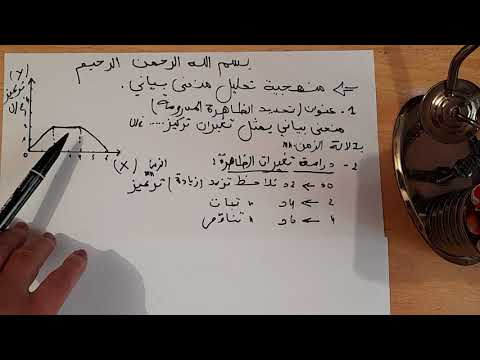 بسم الله الرحمن الرحيم
منهجية تحليل منحنى بياني.
1- عنوان (تحديد الظاهرة المدروسة)
منحنى بياني يمثل تغيرات تركيز.....
بدلالة الزمن.
2- دراسة تغيرات الظاهرة:
نلاحظ تزايد (زيادة) تركيز
ثبات
تناقص
(Y)
تركيز
(X)
الزمن